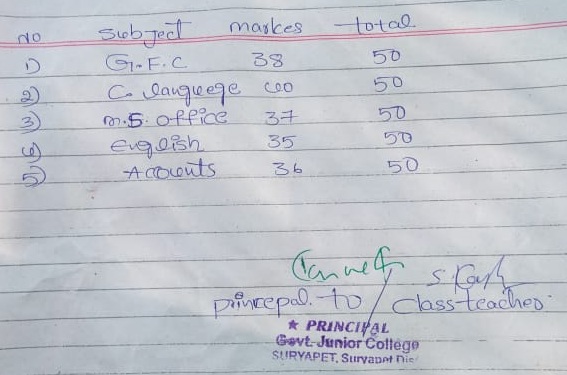 NO Subject markes total
1) G.F.C 38 50
2) C. languege 40 50
3) M.S. office 37 50
4) English 35 50
5) Accounts 36 50
S. 
princepal. to class-teacher.
★ PRINCIPAL
Govt. Junior College
SURYAPET, Suryapet Dis